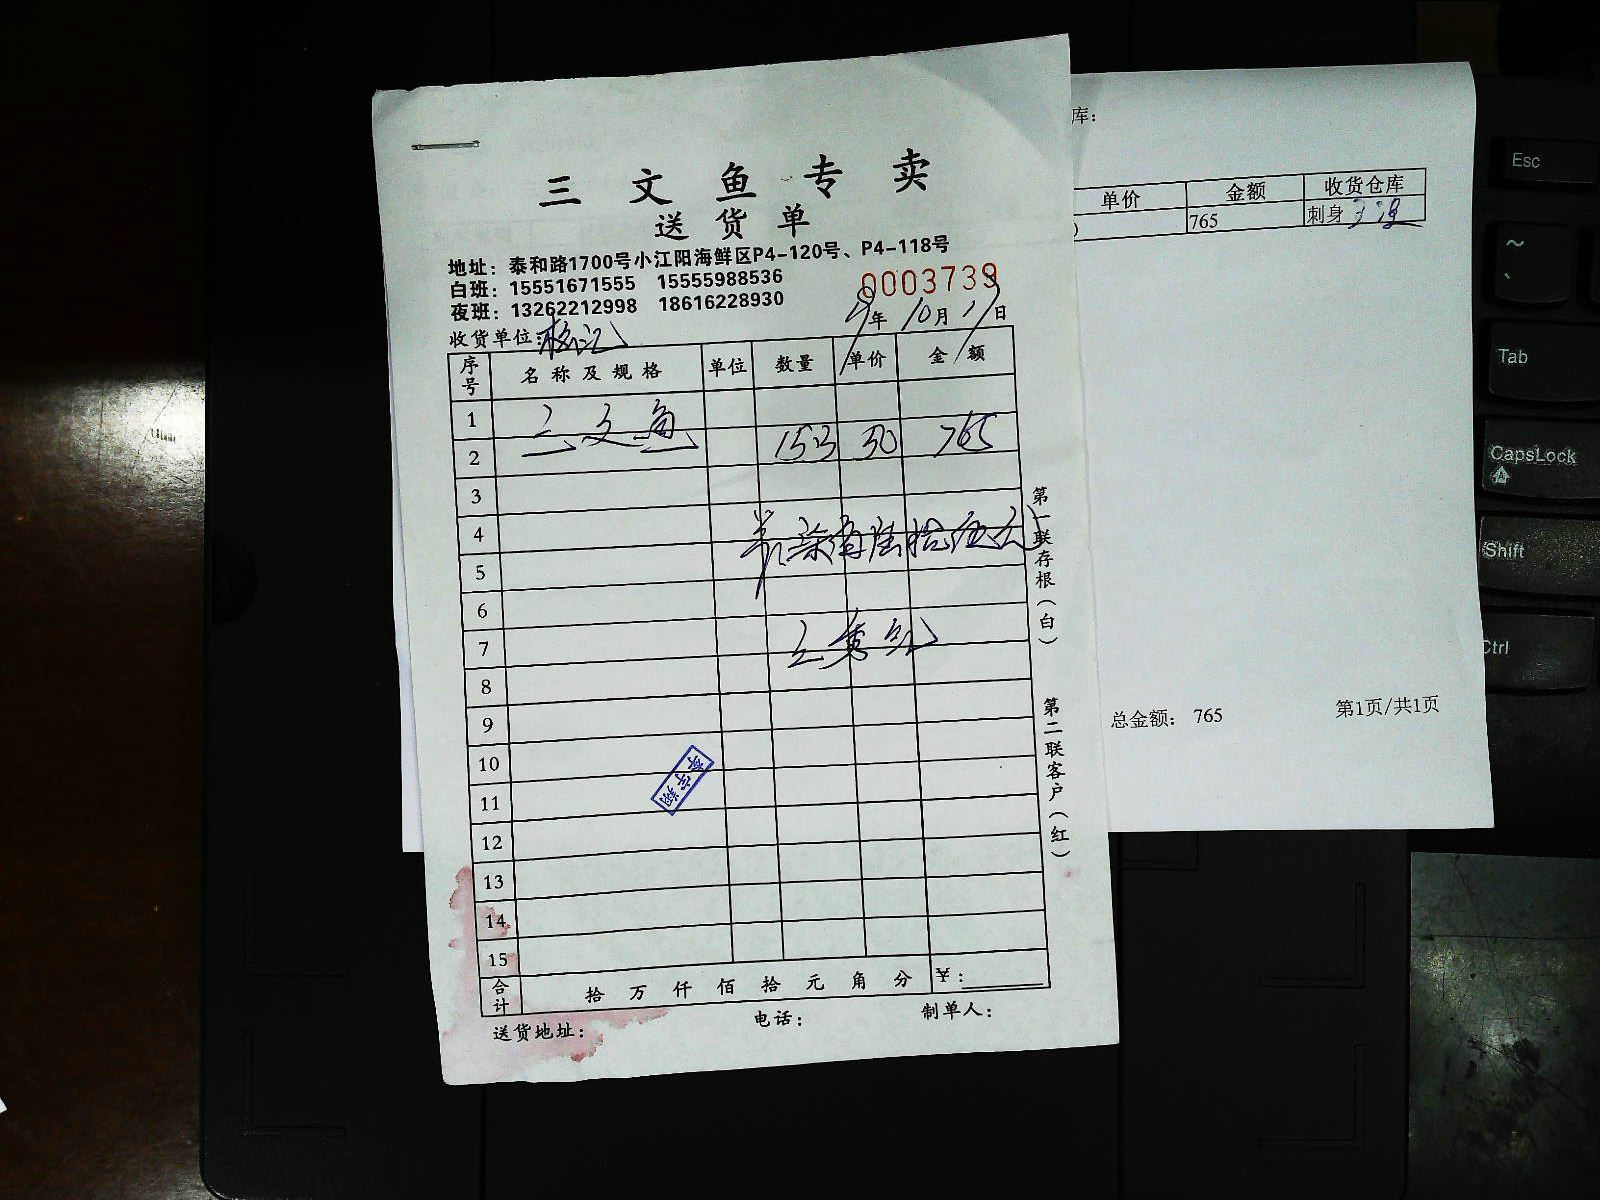 三文鱼专卖
送货单
地址：泰和路1700号小江阳海鲜区P4-120号、P4-118号
白班：15551671555 15555988536
夜班：13262212998 18616228930
0003739
收货单位： 9年10月17日
序号 名称及规格 单位 数量 单价 金额
1 三文鱼
2 153 50 765
3
4
柒佰陆拾伍元
5
6
7
8
9
10
11
12
13
14
15
合计 拾 万 仟 佰 拾 元 角 分 ￥：
送货地址： 电话： 制单人：
第一联存根（白）
第二联客户（红）
李宇翔
库：
单价 金额 收货仓库
765 刺身
总金额： 765 第1页/共1页
Esc
~
Tab
CapsLock
Shift
Ctrl